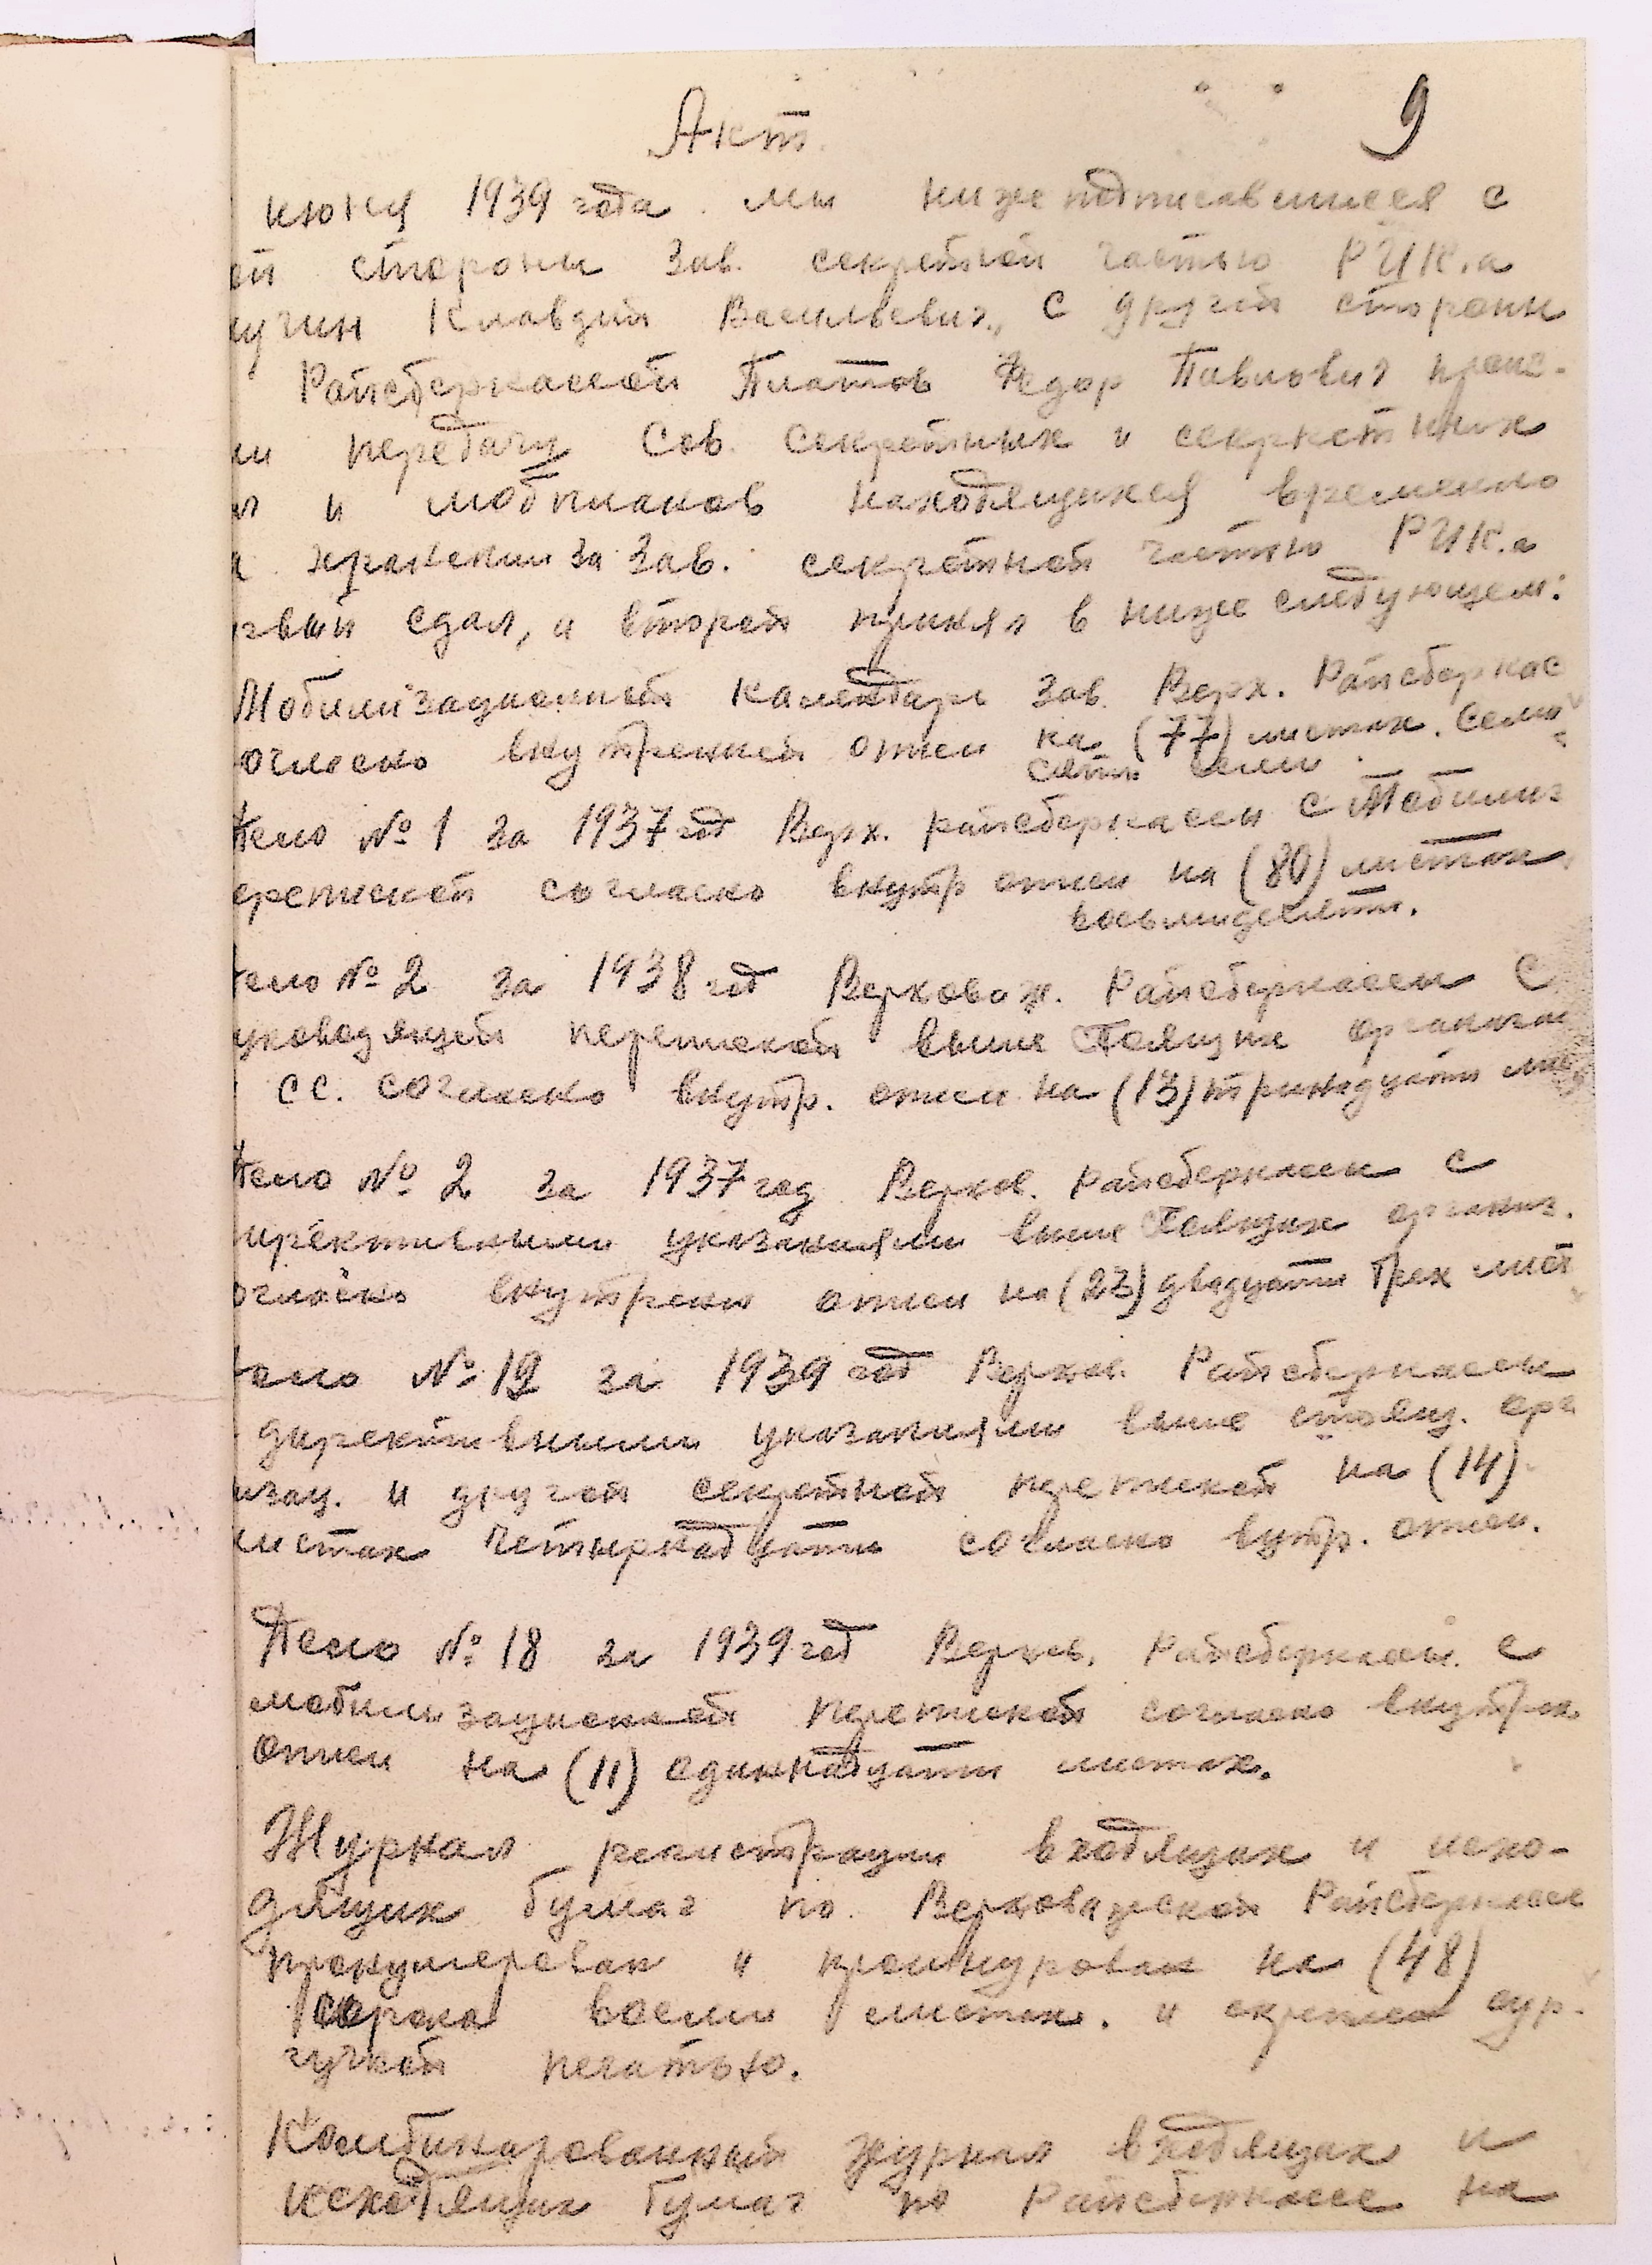 9
Акт.
июня 1939 года. мы ниже подписавшиеся с
ей стороны Зав. секретной частью РИК.а
угин Клавдий Васильевич, с другой стороны
Райсберкассой Платов Федор Павлович произ-
ли передачу Сов. секретных и секретных
и мобпланов находящихся временно
хранении за Зав. секретной частью РИК.а
рвый сдал, и второй принял в ниже следующем:
Мобилизационный календарь Зав. Верх. Райсберкас
огласно внутренней описи на (77) листах. Семь
сять семи.
Дело № 1 за 1937 год Верх. райсберкассы с Мобилиз
ерепиской согласно внутр описи на (80) листах.
восьмидесяти.
ело № 2 за 1938 год Верховаж. Райсберкассы С
уководящей перепиской выше Стоящих организац
СС. согласно внутр. описи на (13) тринадцати лис
Дело № 2 за 1937 год Верхов. Райсберкассы с
ирективными указаниями выше Стоящих организ.
огласно внутренн описи на (23) двадцати трех лист
ело № 12 за 1939 год Верхов. Райсберкассы
директивными указаниями выше стоящ. орга
изац. и другой секретной перепиской на (14)
листах четырнадцати согласно вутр. описи.
Дело № 18 за 1939 год Верхов. Райсберкассы. с
мобилизационной перепиской согласно внутрен.
описи на (11) одиннадцати листах.
Журнал регистрации входящих и исхо-
дящих бумаг по Верховажской Райсберкассе
пронумерован и прошнурован на (48)
сорока восьми листах. и скреплен сур-
гучной печатью.
Комбинированный журнал входящих и
исходящих бумаг по Райсберкассе на